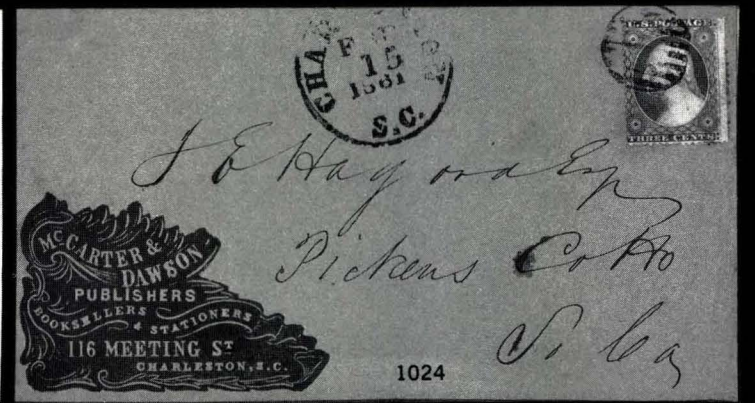 CHARLESTON
FEB
15
1861
S.C.
U.S. POSTAGE
THREE CENTS
J E Hagood Esq
Pickens Co Ho
So Ca
McCARTER &
DAWSON
PUBLISHERS
BOOKSELLERS
& STATIONERS
116 MEETING ST
CHARLESTON, S.C.
1024